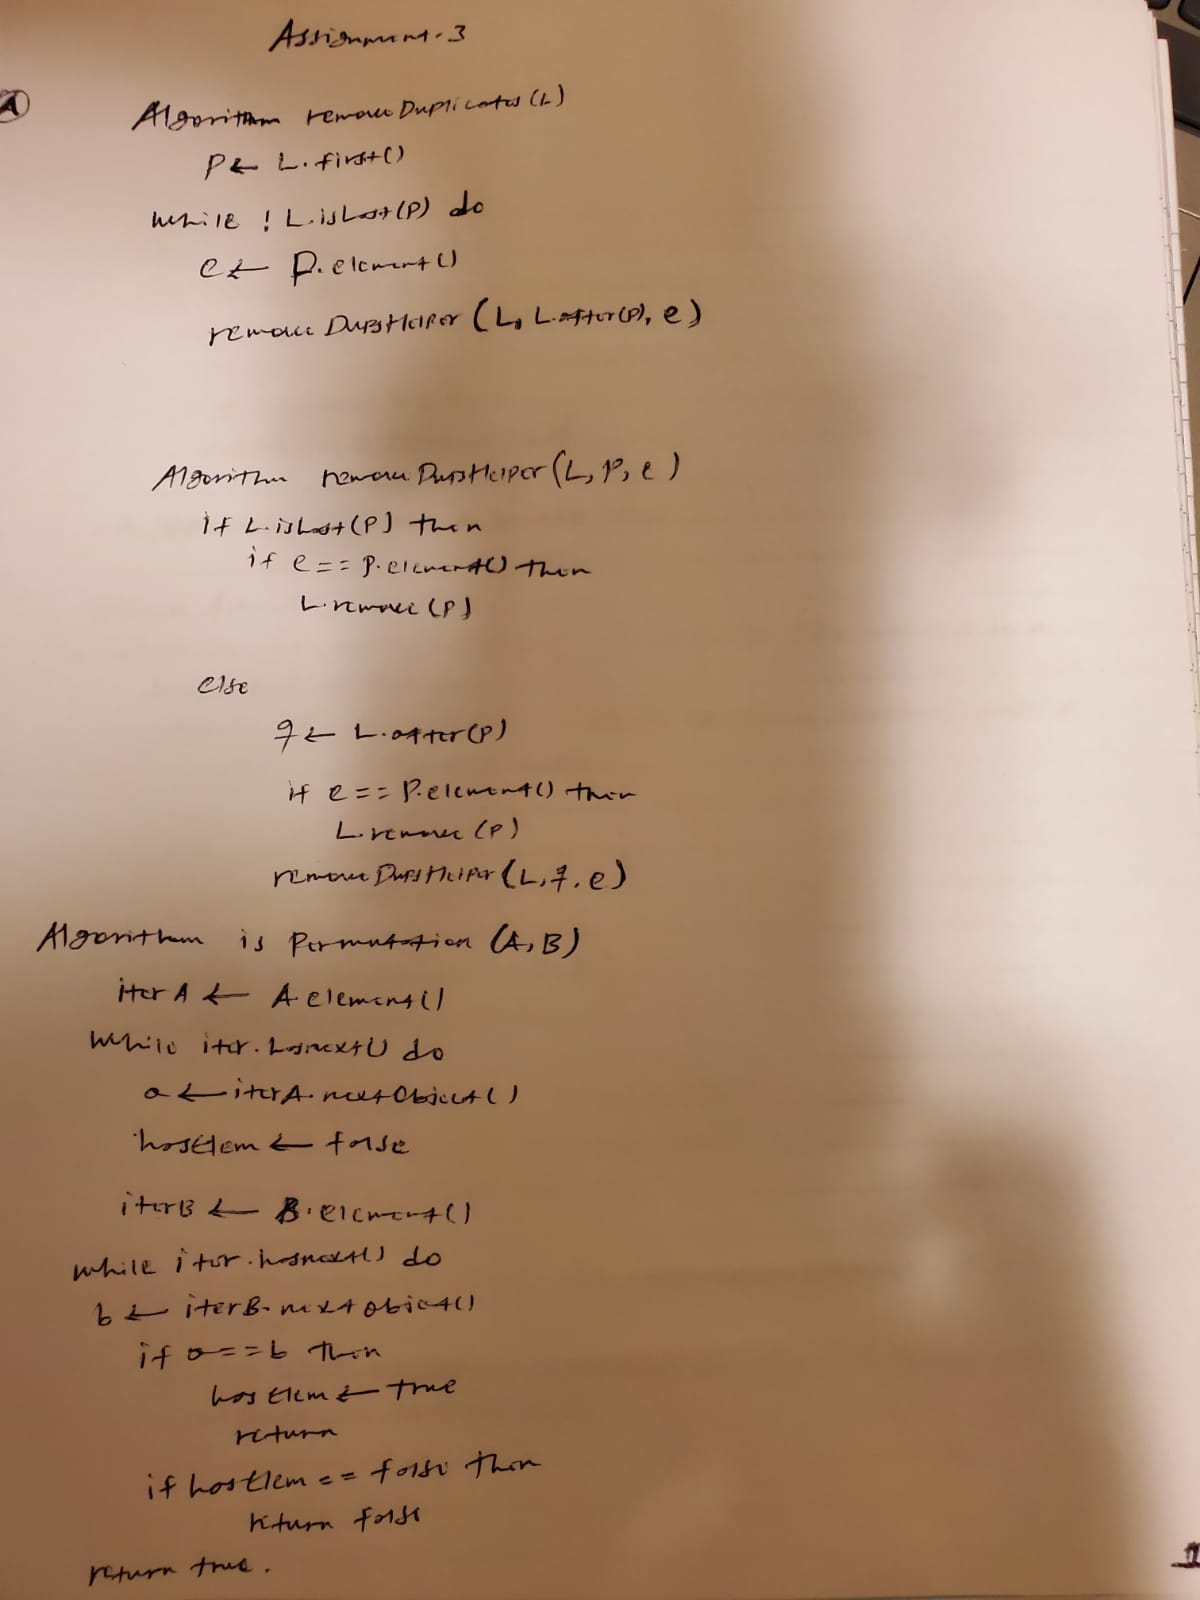 Assignment-3
A
Algorithm removeDuplicates (L)
P ← L.first()
while ! L.isLast(P) do
e ← P.element()
remove DupsHelper (L, L.after(P), e)
Algorithm remove DupsHelper (L, P, e)
if L.isLast(P) then
if e == P.element() then
L.remove (P)
else
q ← L.after(P)
if e == P.element() then
L.remove (P)
remove DupsHelper (L, q, e)
Algorithm is Permutation (A, B)
iter A ← A.element()
while iter.hasnext() do
a ← iterA.nextObject()
hasElem ← false
iterB ← B.element()
while iter.hasnext() do
b ← iterB.nextobject()
if a == b then
has Elem ← true
return
if hasElem == false then
return false
return true.
1